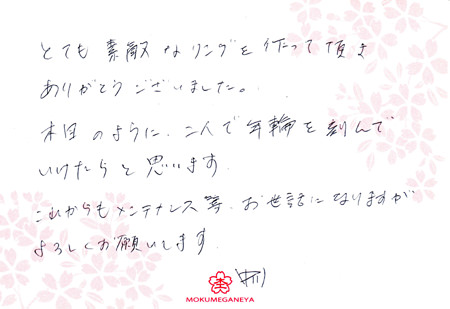 とても素敵なリングを作って頂き
ありがとうございました。
木目のように、二人で年輪を刻んで
いけたらと思います。
これからもメンテナンス等、お世話になりますが
よろしくお願いします
MOKUMEGANEYA